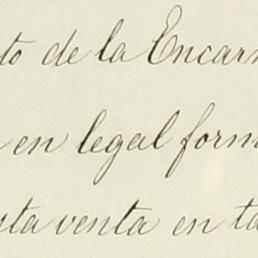 to de la Encarn
en legal form
sta venta en ta